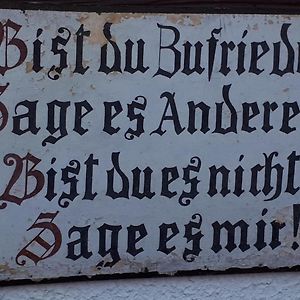 Bist du Zufriede
Sage es Andere
Bist du es nicht
Sage es mir!